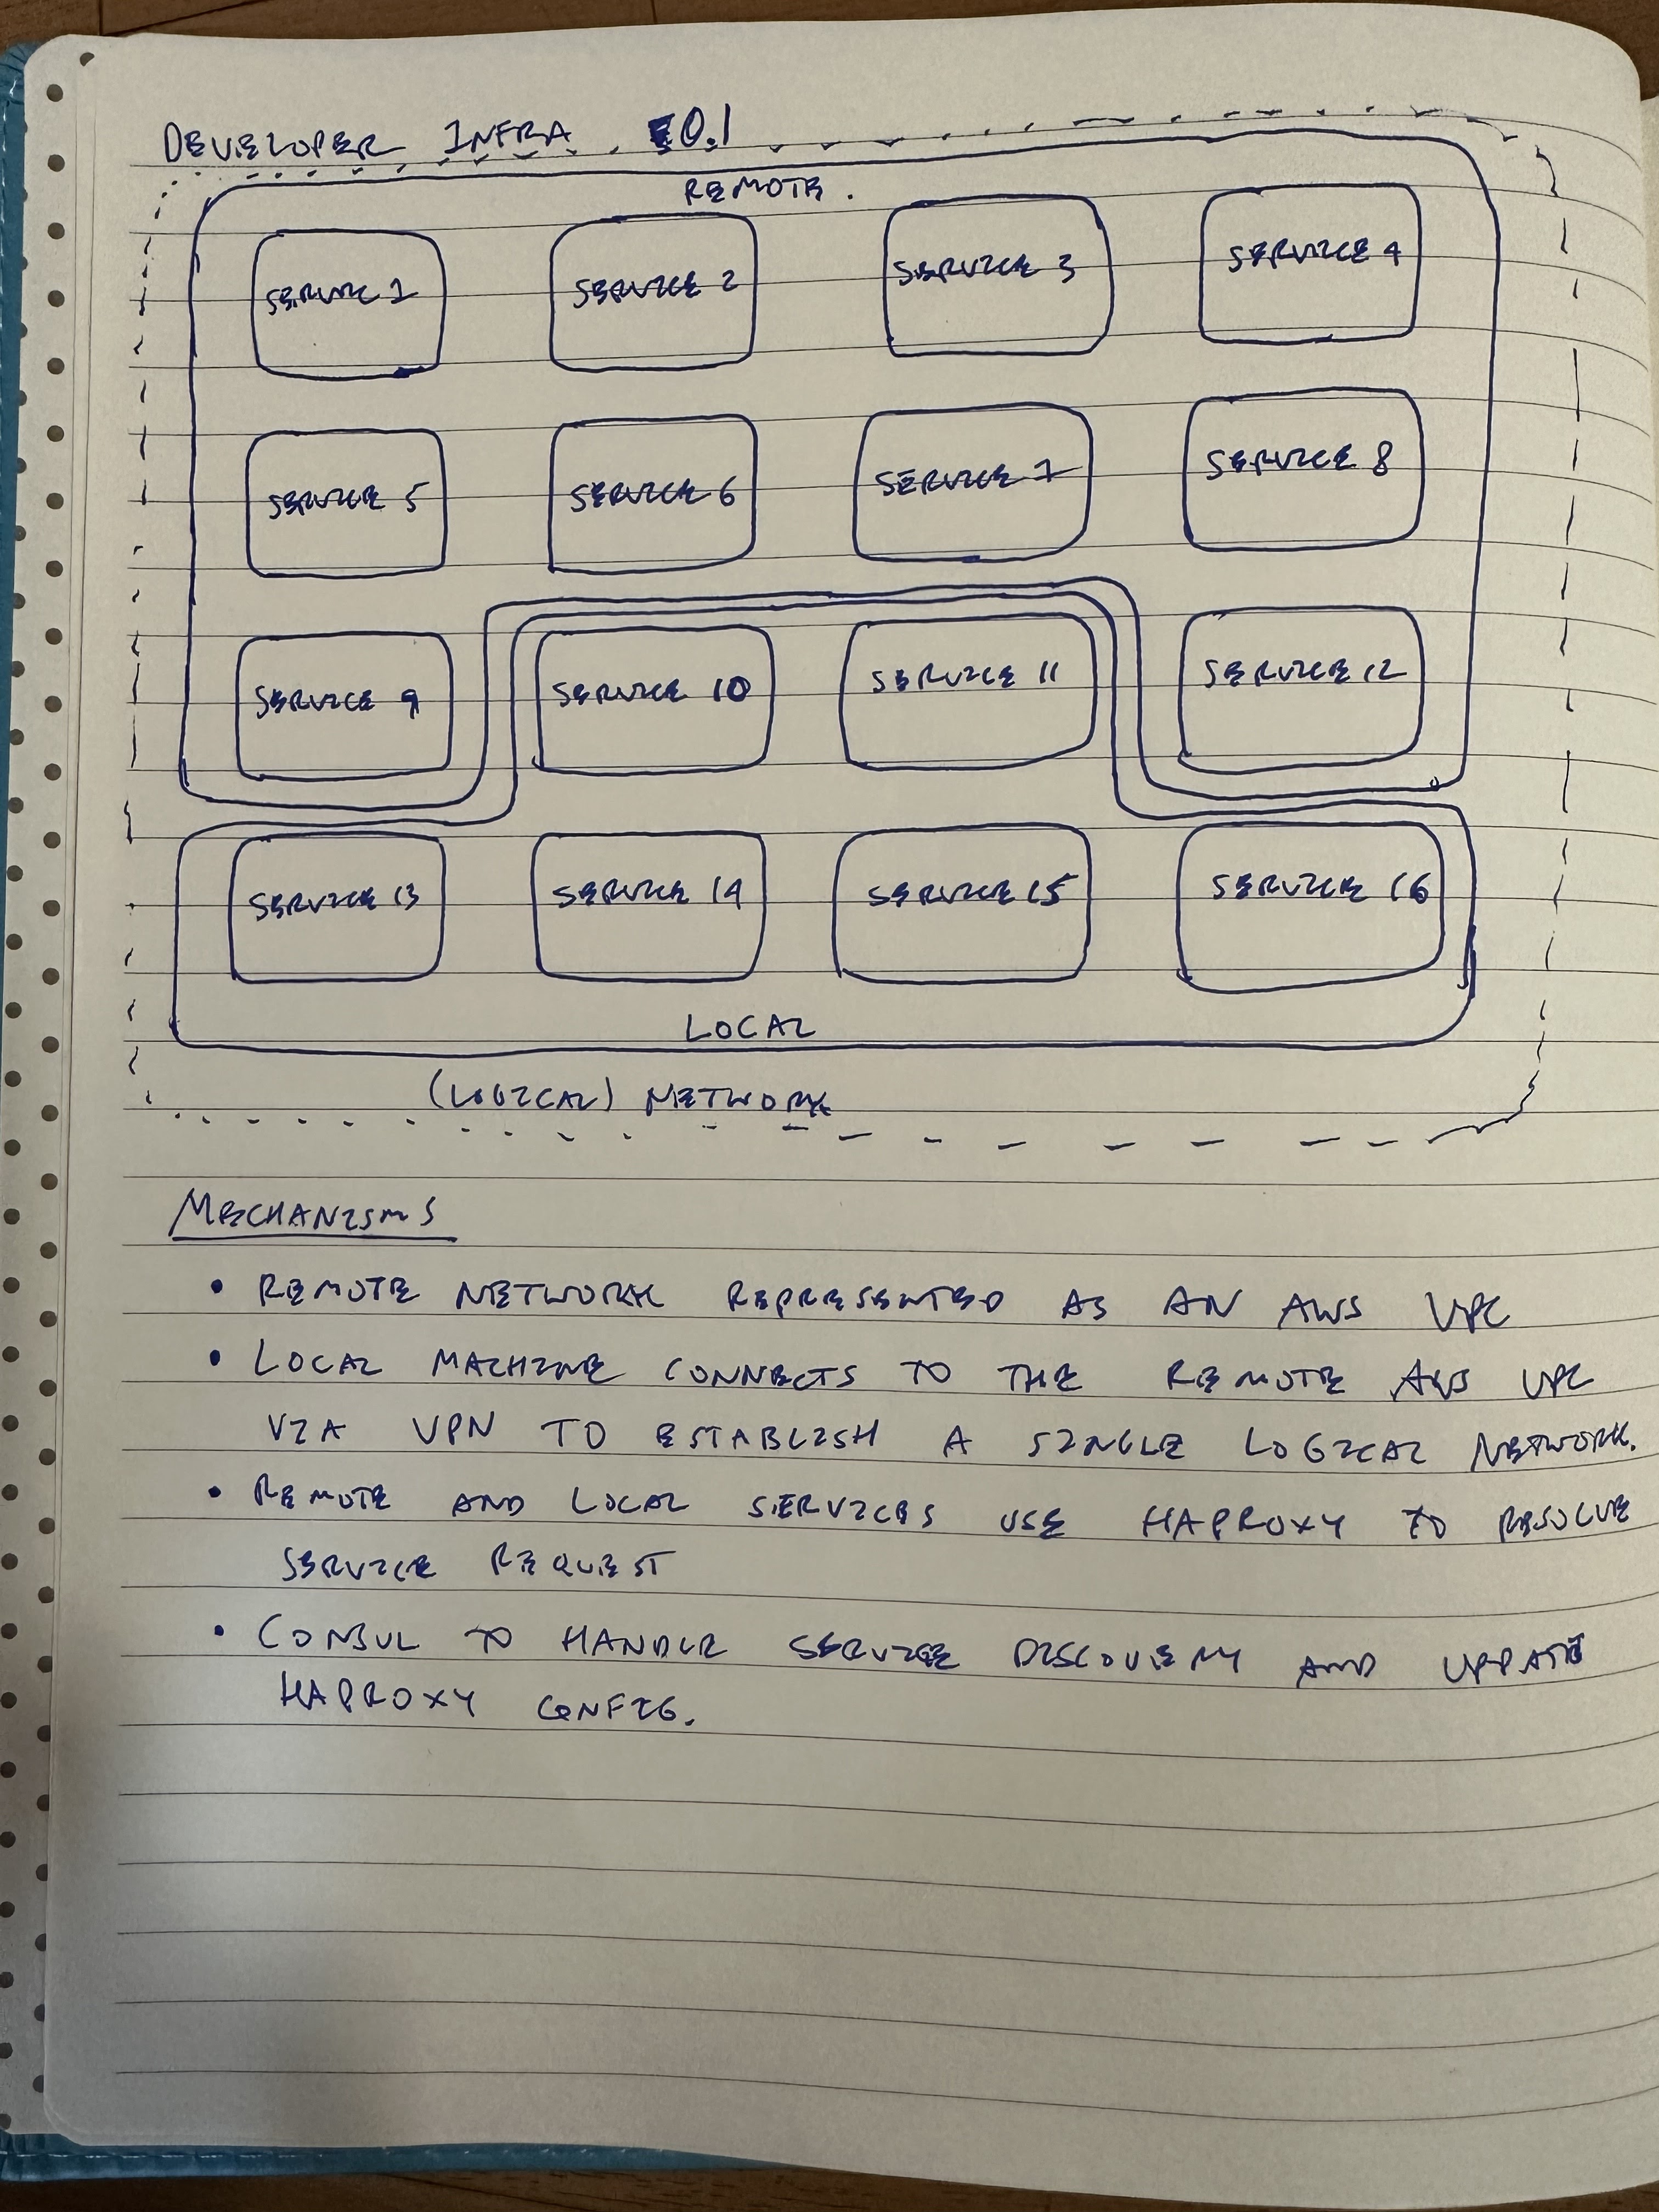 DEVELOPER INFRA 0.1
REMOTE.
SERVICE 1 SERVICE 2 SERVICE 3 SERVICE 4
SERVICE 5 SERVICE 6 SERVICE 7 SERVICE 8
SERVICE 9 SERVICE 10 SERVICE 11 SERVICE 12
SERVICE 13 SERVICE 14 SERVICE 15 SERVICE 16
LOCAL
(LOGICAL) NETWORK
MECHANISMS
• REMOTE NETWORK REPRESENTED AS AN AWS VPC
• LOCAL MACHINE CONNECTS TO THE REMOTE AWS VPC
VIA VPN TO ESTABLISH A SINGLE LOGICAL NETWORK.
• REMOTE AND LOCAL SERVICES USE HAPROXY TO RESOLVE
SERVICE REQUEST
• CONSUL TO HANDLE SERVICE DISCOVERY AND UPDATE
HAPROXY CONFIG.